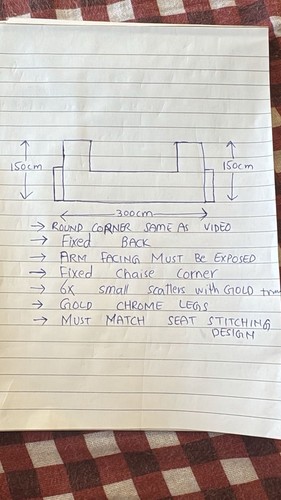 150cm 150cm
300cm
→ ROUND CORNER SAME AS VIDEO
→ Fixed BACK
→ ARM FACING MUST BE EXPOSED
→ Fixed chaise corner
→ 6x small scatters with GOLD trim
→ GOLD CHROME LEGS
→ MUST MATCH SEAT STITCHING
DESIGN